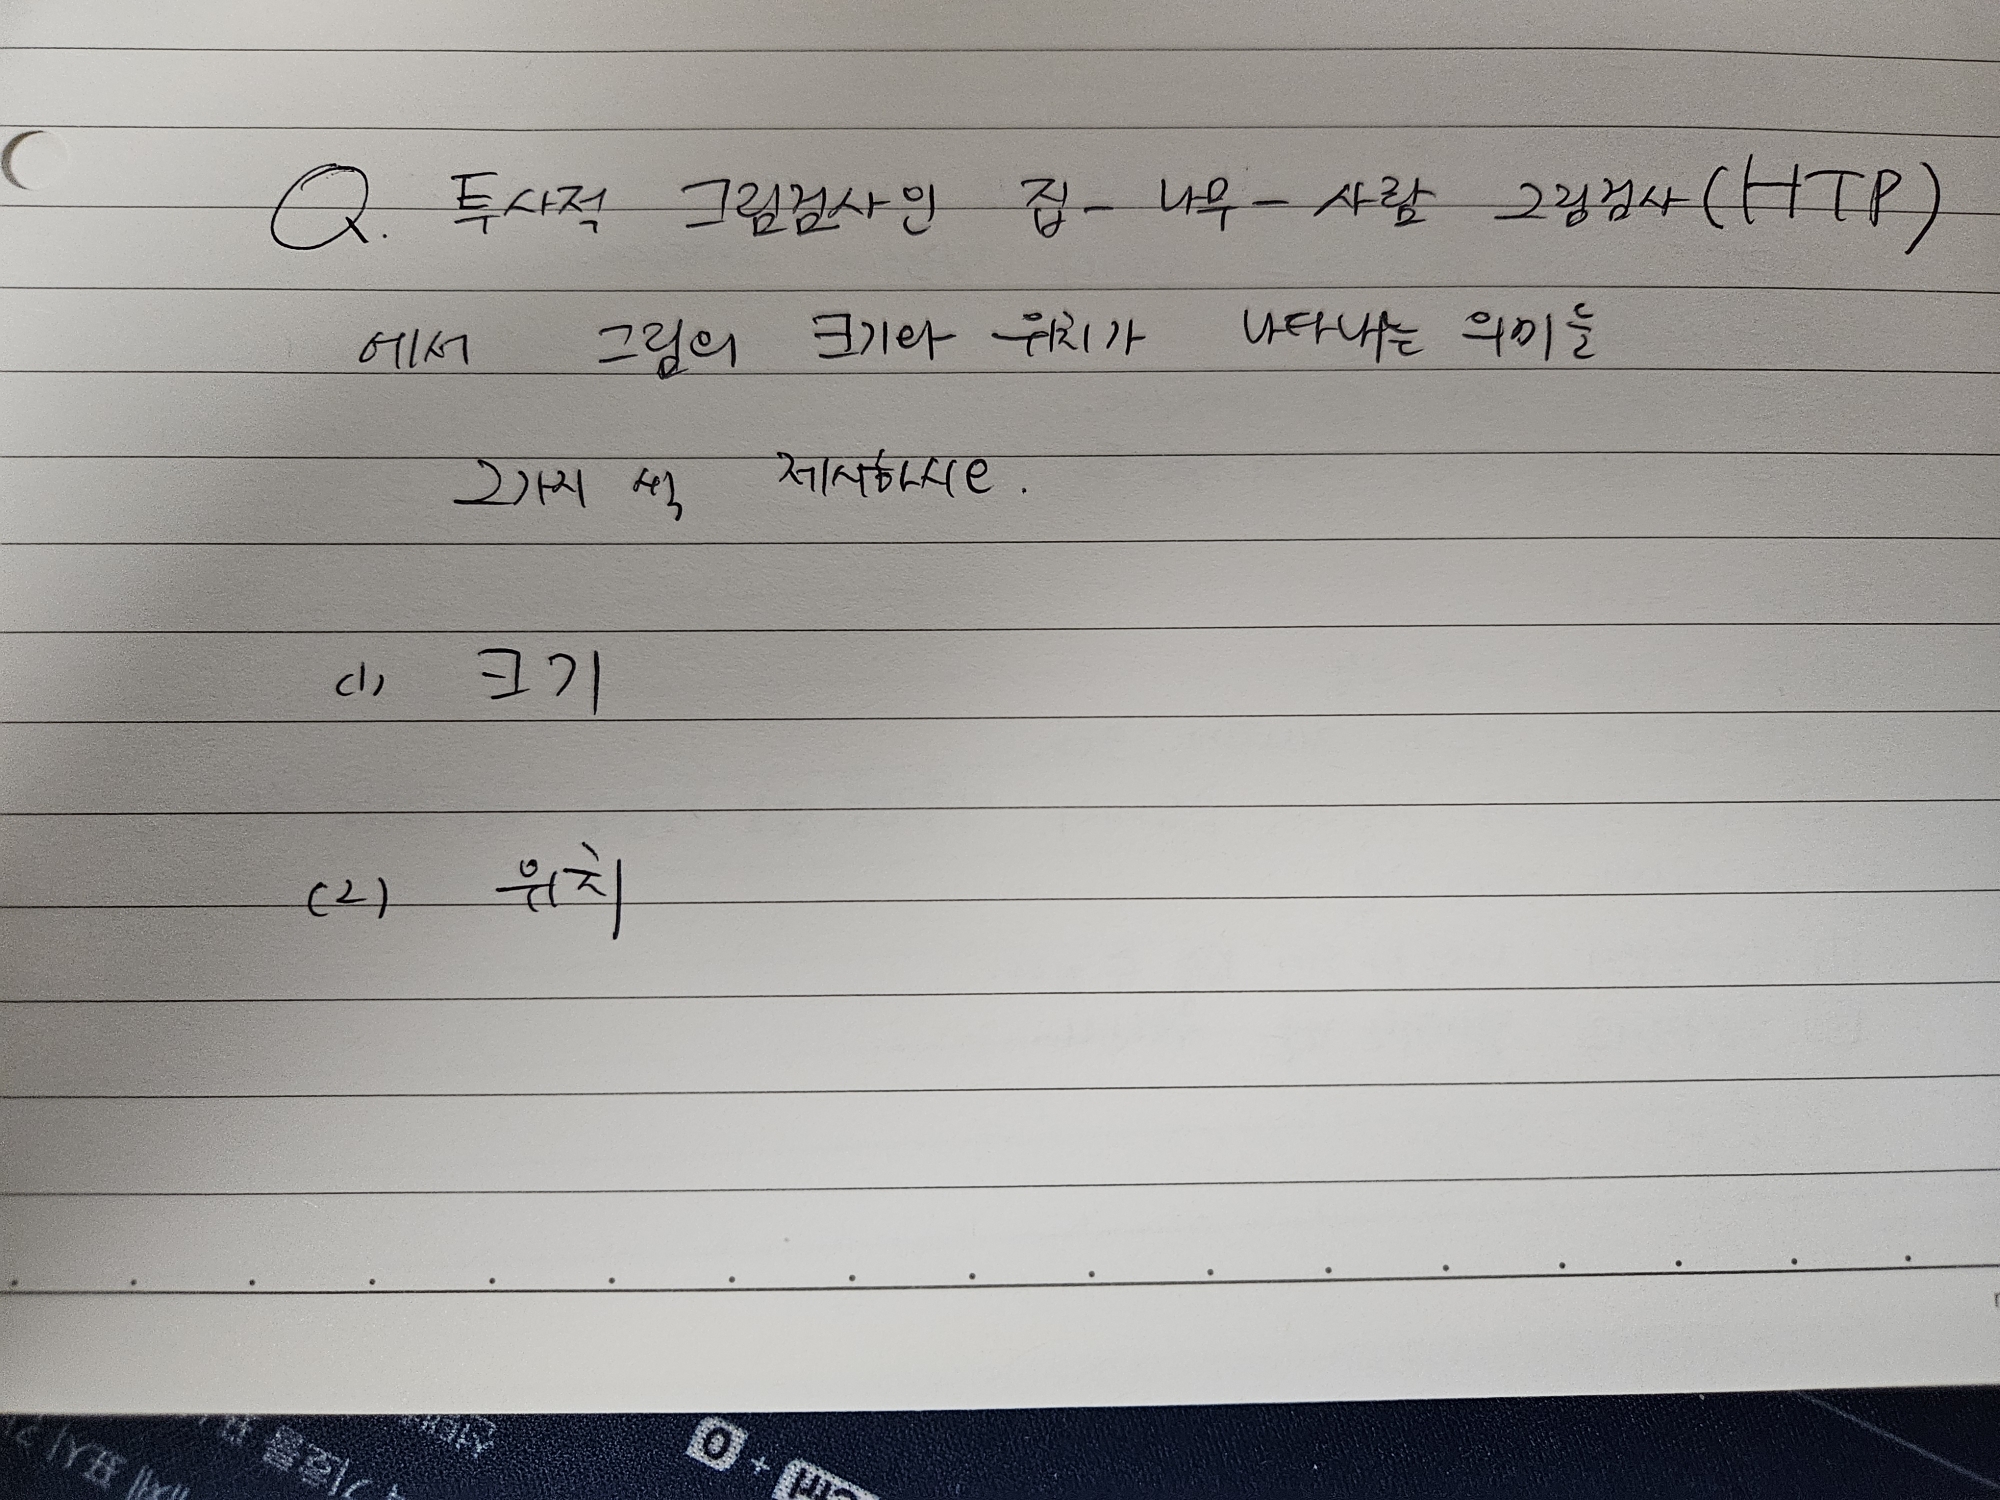 Q. 투사적 그림검사인 집 - 나무 - 사람 그림검사(HTP)
에서 그림의 크기와 위치가 나타내는 의미를
2가지 씩 제시하시오.
(1) 크기
(2) 위치
O +